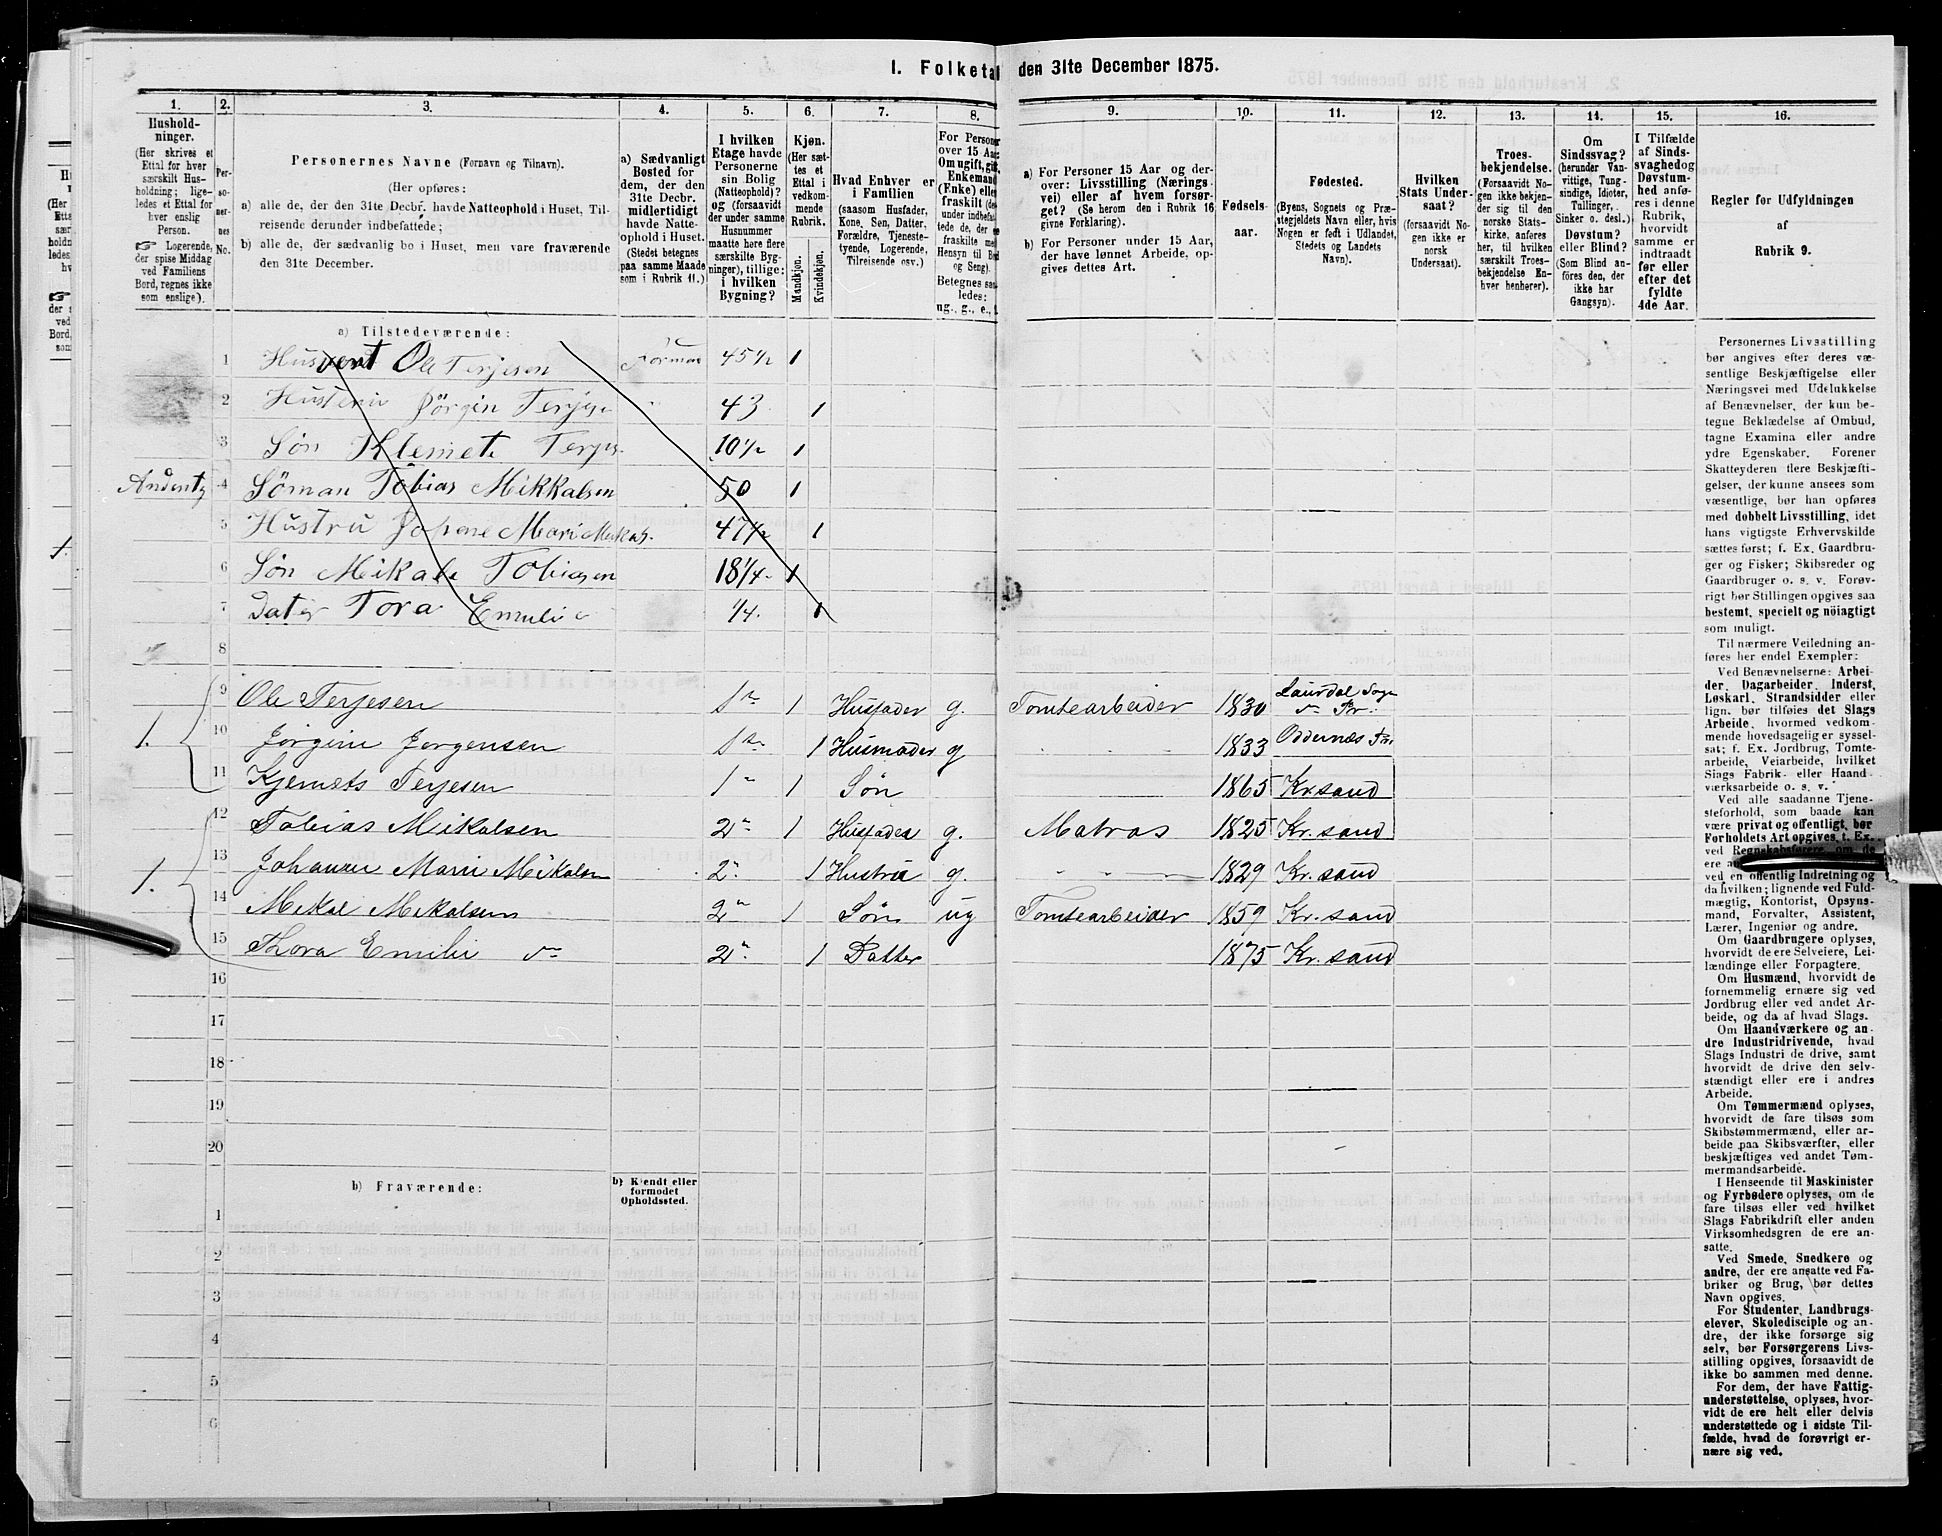 I. Folketal den 31te December 1875.
1. 2. 3. 4. 5. 6. 7. 8. 9. 10. 11. 12. 13. 14. 15. 16.
Hushold-
ninger.
(Her skrives et
Ettal for hver
særskilt Hus-
holdning; lige-
ledes et Ettal for
hver enslig
Person.
☞ Logerende,
der spise Middag
ved Familiens
Bord, regnes ikke
som enslige).
Per-
so-
ner-
nes
No.
Personernes Navne (Fornavn og Tilnavn).
(Her opføres:
a) alle de, der den 31te Decbr. havde Natteophold i Huset, Til-
reisende derunder indbefattede;
b) alle de, der sædvanlig bo i Huset, men vare fraværende
den 31te December.
a) Sædvanligt
Bosted for
dem, der den
31te Decbr.
midlertidigt
havde Natte-
ophold i Huset.
(Stedet betegnes
paa samme Maade
som i Rubrik 11.)
I hvilken
Etage havde
Personerne
sin Bolig
(Natteophold)?
og (forsaavidt
der under samme
Husnummer
maatte høre flere
særskilte Byg-
ninger), tillige:
i hvilken
Bygning?
Kjøn.
(Her sæt-
tes et
Ettal i
vedkom-
mende
Rubrik.
Mandkjøn.
Kvindekjøn.
Hvad Enhver er
i Familien
(saasom Husfader,
Kone, Søn, Datter,
Forældre, Tjeneste-
tyende, Logerende,
Tilreisende osv.)
For Personer
over 15 Aar:
Om ugift, gift,
Enkemand
(Enke) eller
fraskilt
Betegnes saa-
ledes:
ug., g., e.,
a) For Personer 15 Aar og der-
over: Livsstilling (Nærings-
vei) eller af hvem forsør-
get? (Se herom den i Rubrik 16
givne Forklaring).
b) For Personer under 15 Aar,
der have lønnet Arbeide, op-
gives dettes Art.
Fødsels-
aar.
Fødested.
(Byens, Sognets og Præ-
stegjeldets Navn eller, hvis
Nogen er født i Udlandet,
Stedets og Landets
Navn).
Hvilken
Stats Under-
saat?
(forsaavidt No-
gen ikke er
norsk
Undersaat).
Troes-
bekjendelse.
(Forsaavidt No-
gen ikke bekjen-
der sig til den
norske Stats-
kirke, anføres
her, til hvilken
særskilt Troes-
bekjendelse En-
hver henhører).
Om
Sindssvag?
(herunder Van-
vittige, Tung-
sindige, Idioter,
Tullinger,
Sinker o. desl.)
Døvstum?
eller Blind?
(Som Blind an-
føres den, der
ikke har
Gangsyn).
I Tilfælde
af Sinds-
svaghed og
Døvstum-
hed anfø-
res i denne
Rubrik,
hvorvidt
samme er
indtraadt
før eller
efter det
fyldte
4de Aar.
Regler for Udfyldningen
af
Rubrik 9.
a) Tilstedeværende:
1 Ole Terjesen 45½ 1
2 Jörgin 43 1
3 Søn Klemets 10½ 1
4 Tobias Mikkalsen 50 1
5 Hustru Johene Mari 47½ 1
6 Søn Mikale Tobiasen 18¼ 1
7 Dater Tora Emuli ¼ 1
8
9 Ole Terjesen 1 1 Husfader g. Tomtearbeider 1830
1. 10 Jörgine Jörgensen 1 1 Husmoder g 1833 Oddernæs
11 Terjesen 1 1 Søn 1865 Kr.sand
12 Tobias Mikalsen 2 1 Husfader g. Matros 1825 Kr.sand
1. 13 Johanne Marie Mikalsen 2 1 Hustru g. 1829 Kr.sand
14 Mikal Mikalsen 2 1 Søn ug Tomtearbeider 1859 Kr.sand
15 Thora Emilie 2 1 Datter 1875 Kr.sand
16
17
18
19
20
b) Fraværende:
b) Kjendt eller
formodet
Opholdssted.
1
2
3
4
5
6
Personernes Livsstilling
bør angives efter deres væ-
sentlige Beskjæftigelse eller
Næringsvei med Udelukkelse
af Benævnelser, der kun be-
tegne Beklædelse af Ombud,
tagne Examina eller andre
ydre Egenskaber. Forener
Skatteyderen flere Beskjæfti-
gelser, der kunne ansees som
væsentlige, bør han opføres
med dobbelt Livsstilling, idet
hans vigtigste Erhvervskilde
sættes først; f. Ex. Gaardbru-
ger og Fisker; Skibsreder og
Gaardbruger o. s. v. Forøv-
rigt bør Stillingen opgives saa
bestemt, specielt og nöiagtigt
som muligt.
Til nærmere Veiledning an-
føres her endel Exempler:
Ved Benævnelserne: Arbei-
der, Dagarbeider, Inderst,
Løskarl, Strandsidder eller
lign. bør tilføies det Slags
Arbeide, hvormed vedkom-
mende hovedsagelig er syssel-
sat; f. Ex. Jordbrug, Tomte-
arbeide, Veiarbeide, hvilket
Slags Fabrik- eller Haand-
værksarbeide o. s. v.
Ved alle saadanne Tjene-
steforhold, som baade kan
være privat og offentligt, bør
Forholdets Art opgives, t. Ex.
ved Regnskabsførere, om de
ved en offentlig Indretning og
da hvilken; lignende ved Fuld-
mægtig, Kontorist, Opsyns-
mand, Forvalter, Assistent,
Lærer, Ingeniør og andre.
Om Gaardbrugere oplyses,
hvorvidt de ere Selveiere, Lei-
lændinge eller Forpagtere.
Om Husmænd, hvorvidt de
fornemmelig ernære sig ved
Jordbrug eller ved andet Ar-
beide, og da af hvad Slags.
Om Haandværkere og an-
dre Industridrivende, hvad
Slags Industri de drive, samt
hvorvidt de drive den selv-
stændigt eller ere i andres
Arbeide.
Om Tømmermænd oplyses,
hvorvidt de fare tilsøs som
Skibstømmermænd, eller ar-
beide paa Skibsværfter, eller
beskjæftiges ved andet Tøm-
mermandsarbeide.
I Henseende til Maskinister
og Fyrbødere oplyses, om de
fare tilsøs eller ved hvilket
Slags Fabrikdrift eller anden
Virksomhedsgren de ere an-
satte.
Ved Smede, Snedkere og
andre, der ere ansatte ved Fa-
briker og Brug, bør dettes
Navn opgives.
For Studenter, Landbrugs-
elever, Skoledisciple og an-
dre, der ikke forsørge sig
selv, bør Forsørgerens Livs-
stilling opgives, forsaavidt de
ikke bo sammen med denne.
For dem, der have Fattig-
understøttelse, oplyses, hvor-
vidt de ere helt eller delvis
understøttede og i sidste Til-
fælde, hvad de forøvrigt er-
nære sig ved.